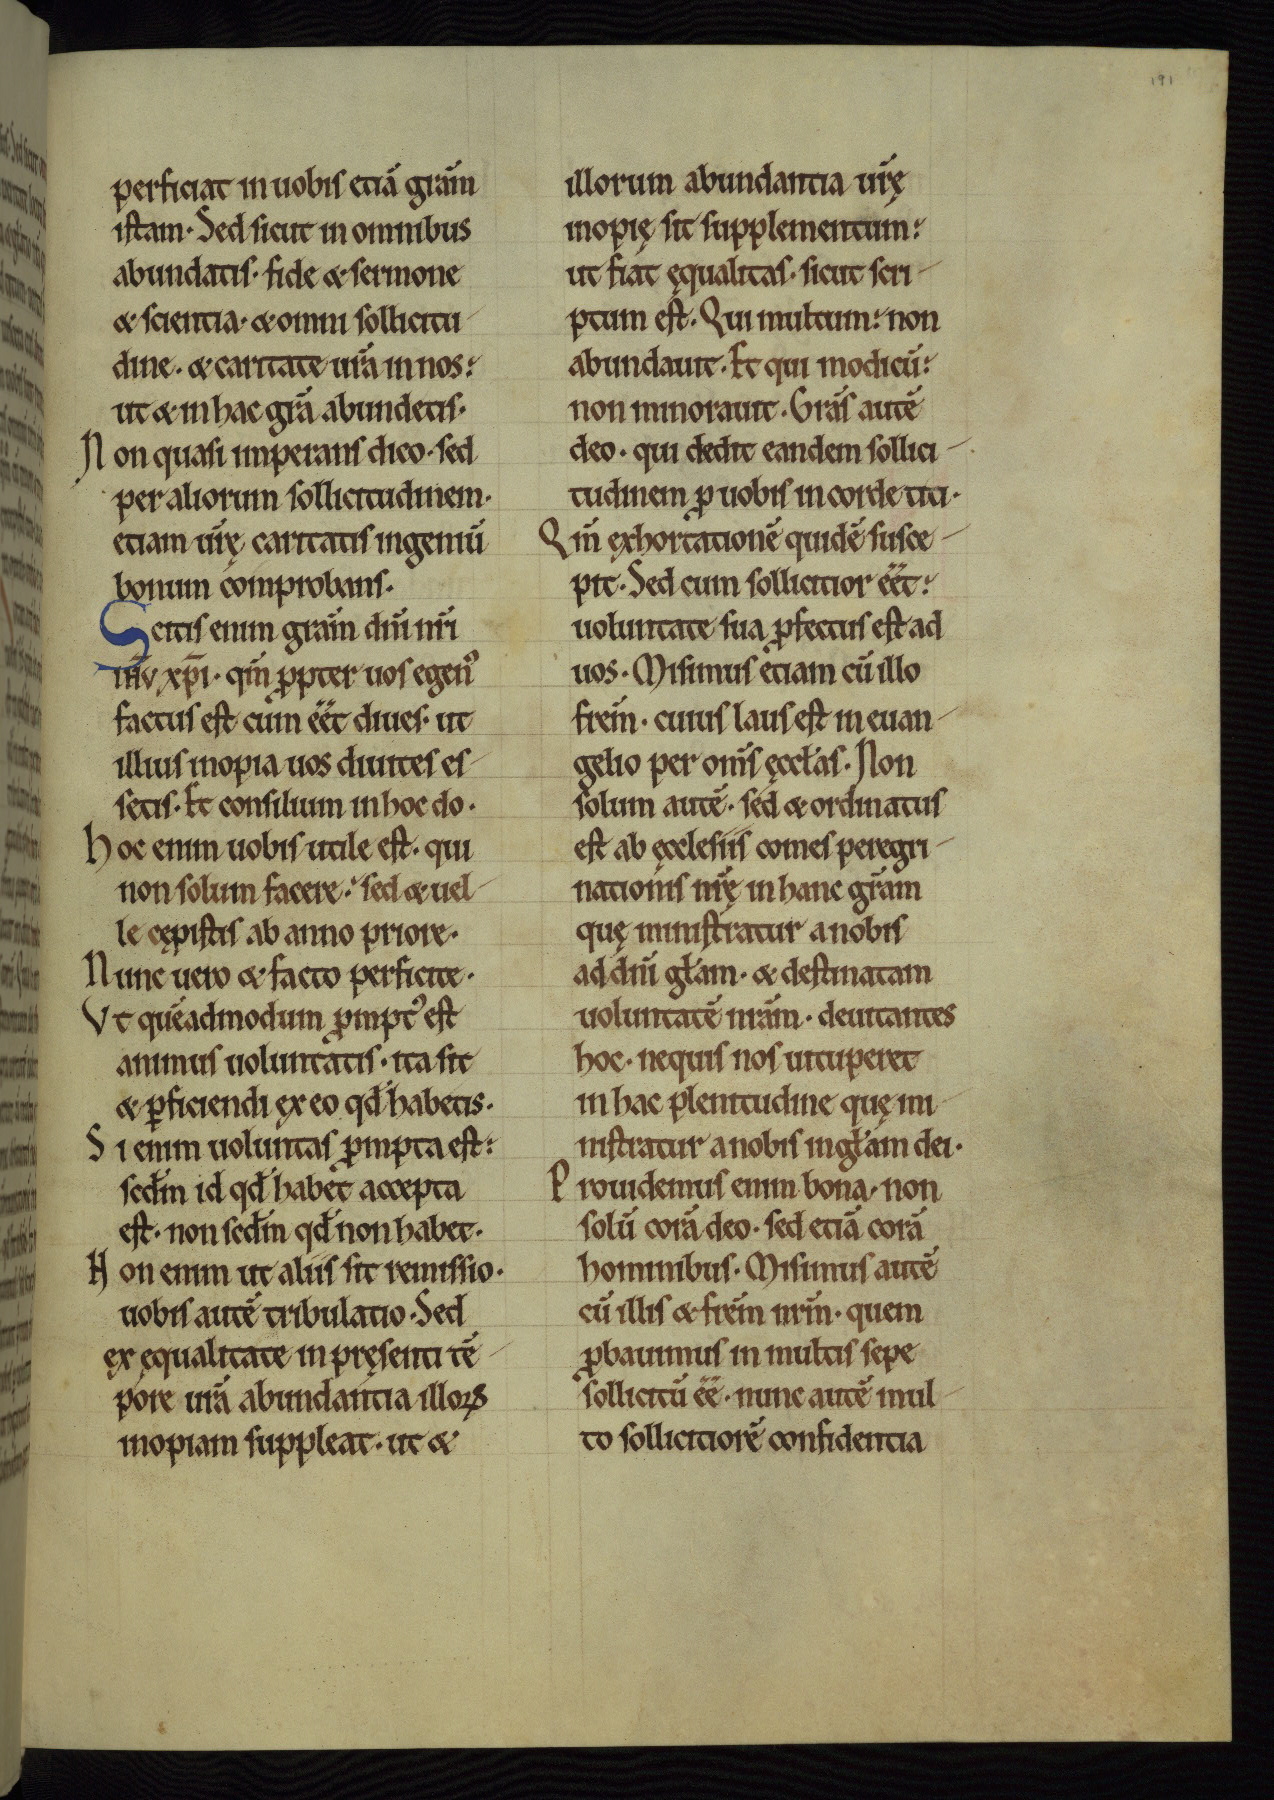 191
perficiat in uobis etiā grām
istam· Sed sicut in omnibus
abundatis· fide & sermone
& scientia· & omni sollicitu
dine· & caritate urā in nos:
ut & in hac grā abundetis·
Non quasi imperans dico· sed
per aliorum sollicitudinem·
etiam urę caritatis ingeniū
bonum comprobans·
Scitis enim grām dn̄i nr̄i
ihv xp̄i· qm̄ ꝓpter uos egenꝰ
factus est cum eēt diues· ut
illius inopia uos diuites es
setis· Et consilium in hoc do·
Hoc enim uobis utile est· qui
non solum facere: sed & uel
le cępistis ab anno priore·
Nunc uero & facto perficite·
Vt quēadmodum ꝓmptꝰ est
animus uoluntatis· ita sit
& ꝑficiendi ex eo qđ habetis·
Si enim uoluntas ꝓmpta est:
scđm id qđ habet accepta
est· non scđm qđ non habet·
Non enim ut aliis sit remissio·
uobis autē tribulatio· Sed
ex ęqualitate in pręsenti tē
pore urā abundantia illoꝝ
inopiam suppleat· ut &
illorum abundantia urę
inopię sit supplementum:
ut fiat ęqualitas· sicut scri
ptum est· Qui multum: non
abundauit· Et qui modicū:
non minorauit· Grās autē
deo· qui dedit eandem sollici
tudinem ꝓ uobis in corde titi·
Qm̄ exhortationē quidē susce
pit· Sed cum sollicitior eēt:
uoluntate sua ꝓfectus est ad
uos· Misimus etiam cū illo
frēm· cuius laus est in euan
gelio per om̄s ęccłas· Non
solum autē· sed & ordinatus
est ab ęcclesiis comes peregri
nationis nrę in hanc grām
quę ministratur a nobis
ad dn̄i głam· & destinatam
uoluntatē nrām· deuitantes
hoc· nequis nos uituperet
in hac plenitudine quę mi
nistratur a nobis in głam dei·
Prouidemus enim bona· non
solū corā deo· sed etiā corā
hominibus· Misimus autē
cū illis & frēm nrm̄· quem
ꝓbauimus in multis sepe
sollicitū eē· nunc autē mul
to sollicitiorē confidentia